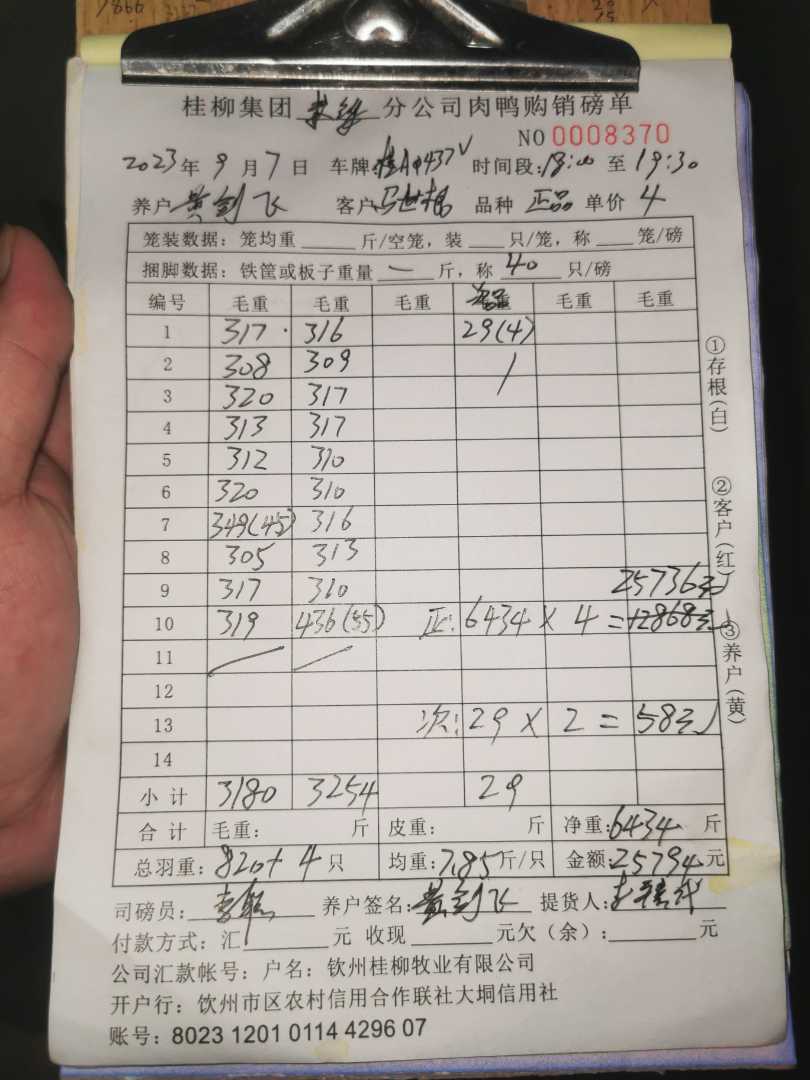 桂柳集团 分公司肉鸭购销磅单
NO 0008370
2023年 9月 7日 车牌:桂A 437V 时间段:18:00 至 19:30
养户 黄剑飞 客户 马世 品种 正品 单价 4
笼装数据: 笼均重 斤/空笼,装 只/笼,称 笼/磅
捆脚数据: 铁筐或板子重量 一 斤,称 40 只/磅
编号 毛重 毛重 毛重 毛重 毛重
1 317 · 316 29(4)
2 308 309 /
3 320 317
4 313 317
5 312 310
6 320 310
7 349(45) 316
8 305 313
9 317 310 25736元
10 319 436(55) 正:6434 X 4 = 12868元
11
12
13 次:29 X 2 = 58元
14
小计 3180 3254 29
合计 毛重: 斤 皮重: 斤 净重:6434 斤
总羽重:820+4 只 均重:7.85 斤/只 金额:25794 元
司磅员: 养户签名:黄剑飞 提货人:
付款方式:汇 元 收现 元欠(余): 元
公司汇款帐号:户名:钦州桂柳牧业有限公司
开户行:钦州市区农村信用合作联社大垌信用社
账号:8023 1201 0114 4296 07
①存根(白)
②客户(红)
③养户(黄)